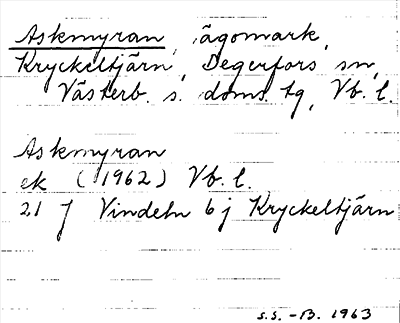 Askmyran, ägomark,
Kryckeltjärn, Degerfors sn,
Västerb. s. doms. tg, Vb. l.
Askmyran
ek (1962) Vb. l.
21 J Vindeln 6 j Kryckeltjärn
S.S. -B. 1963